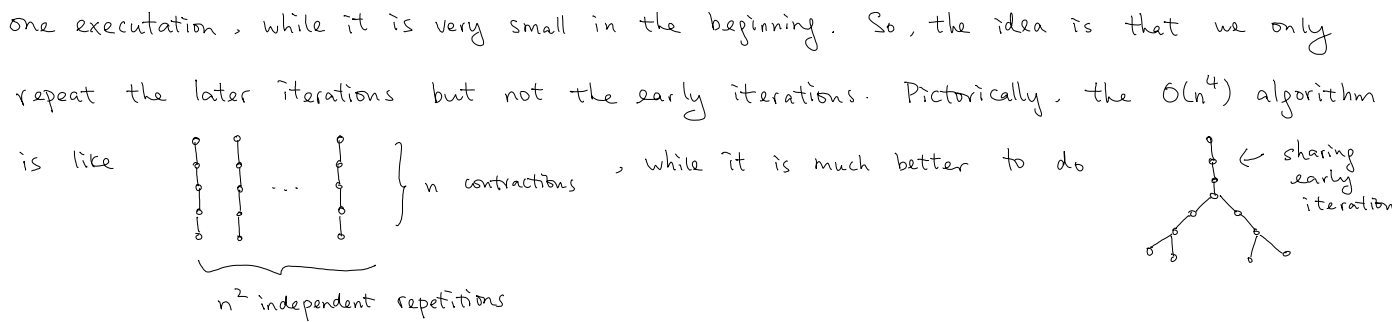 one executation, while it is very small in the beginning. So, the idea is that we only
repeat the later iterations but not the early iterations. Pictorically, the O(n^4) algorithm
is like ... } n contractions , while it is much better to do ← sharing
early
iteration
n^2 independent repetitions